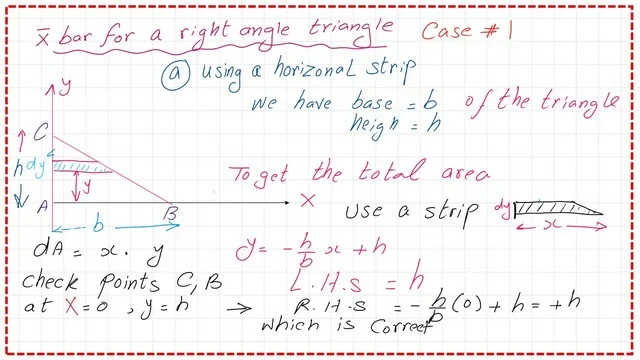 x̄ bar for a right angle triangle Case # 1
ⓐ using a horizonal strip
we have base = b of the triangle
heigh = h
y
C
h dy
y
To get the total area
A B x
b
Use a strip dy
x
dA = x. y y = -h/b x + h
check points C, B L.H.S = h
at x=0, y=h → R.H.S = -h/b (0) + h = +h
which is correct